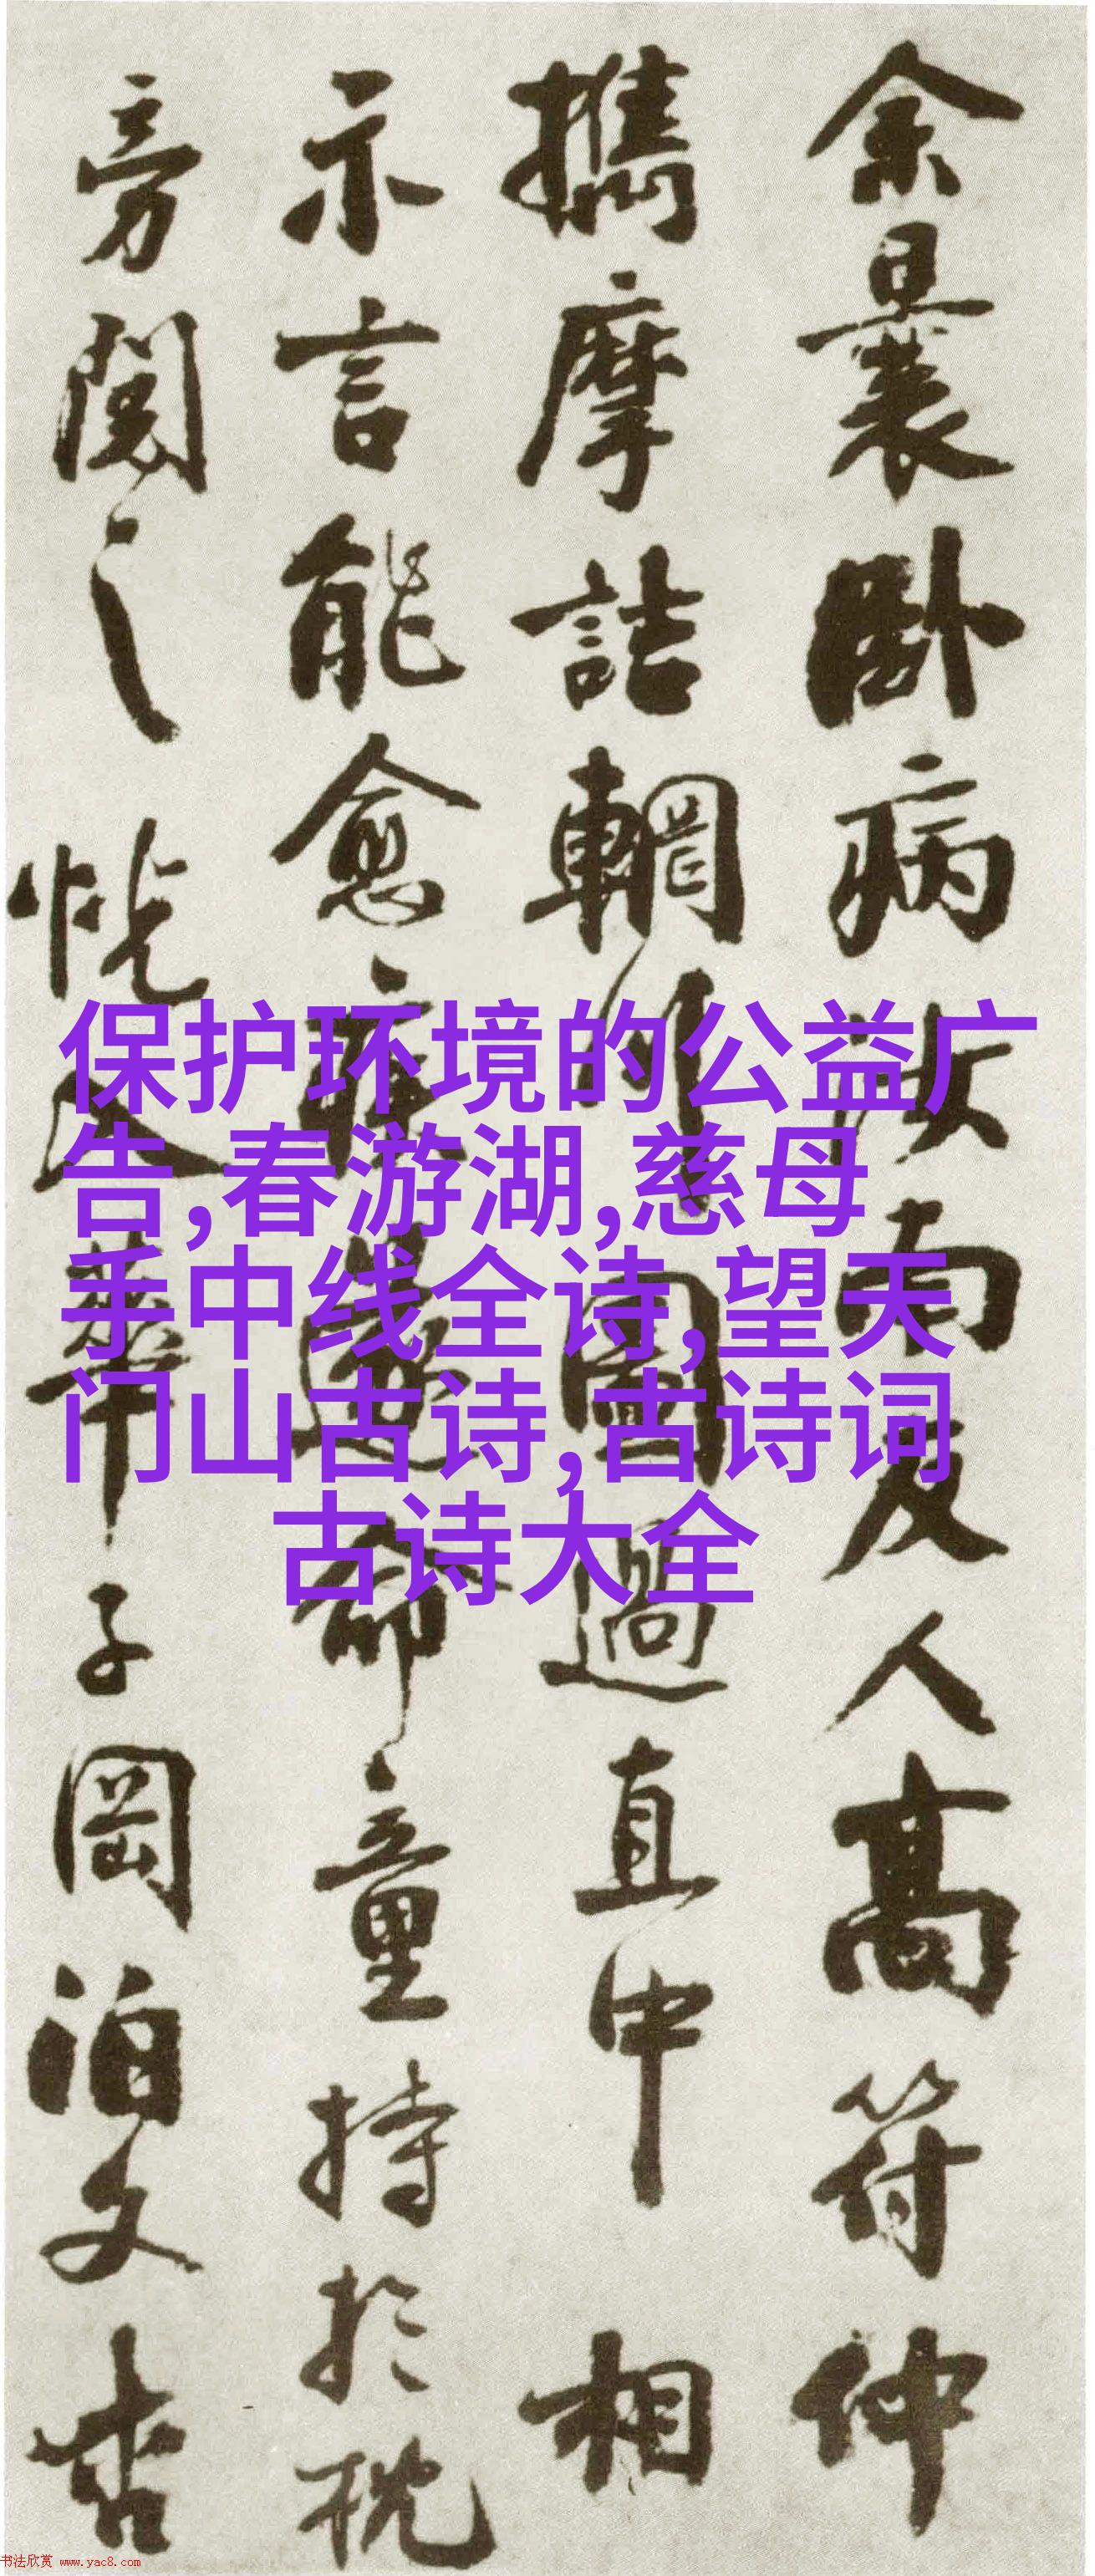 余曩卧病汝南友人高符仲
攜摩詰輞川圖過直中相
示言能愈疾遂命童持於枕
旁閱之恍入華子岡泊文杏
保护环境的公益广
告,春游湖,慈母
手中线全诗,望天
门山古诗,古诗词
古诗大全
书法欣赏 www.yac8.com